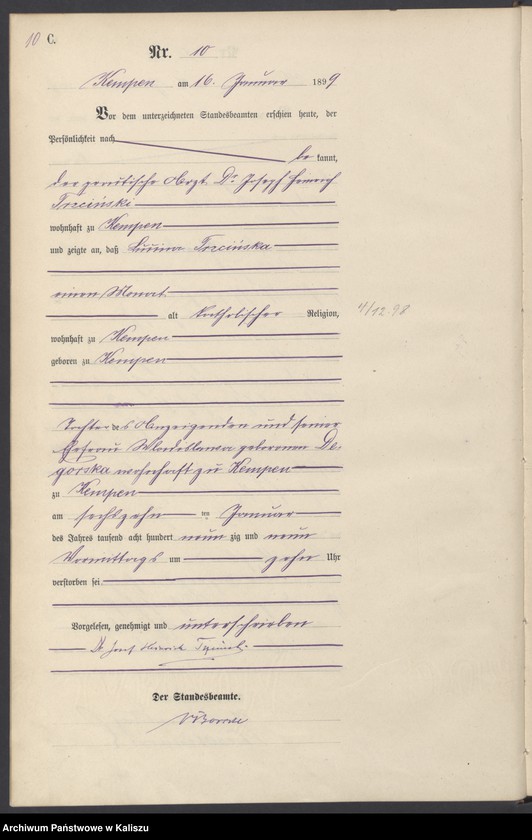 10 C.
Nr. 10
Kempen am 16. Januar 1899
Vor dem unterzeichneten Standesbeamten erschien heute, der
Persönlichkeit nach
be kannt,
der praktische Arzt Dr Joseph Heinrich
Trzciński
wohnhaft zu Kempen
und zeigte an, daß Trzcińska
einen Monat
alt katholischer Religion,
4/12.98
wohnhaft zu Kempen
geboren zu Kempen
Tochter des Anzeigenden und seiner
Ehefrau Wladislawa geborenen De-
gorska wohnhaft zu Kempen
zu Kempen
am sechszehn ten Januar
des Jahres tausend acht hundert neun zig und neun
Vormittags um zehn Uhr
verstorben sei.
Vorgelesen, genehmigt und unterschrieben
Dr Josef Heinrich
Der Standesbeamte.
Archiwum Państwowe w Kaliszu